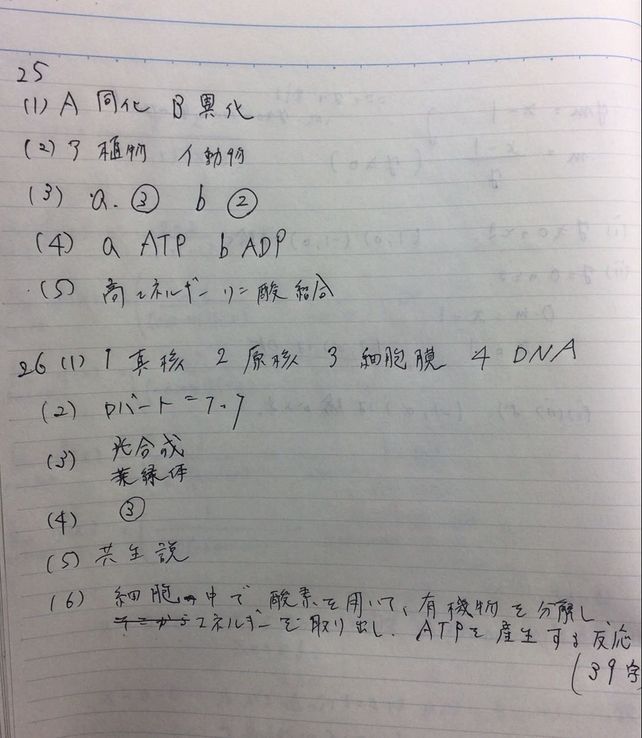 25
(1) A 同化 B 異化
(2) ア 植物 イ 動物
(3) a. ③ b ②
(4) a ATP b ADP
(5) 高エネルギーリン酸結合
26 (1) 1 真核 2 原核 3 細胞膜 4 DNA
(2) ロバート=フック
(3) 光合成
葉緑体
(4) ③
(5) 共生説
(6) 細胞の中で酸素を用いて、有機物を分解し、
そこからエネルギーを取り出し、ATPを産生する反応
(39字